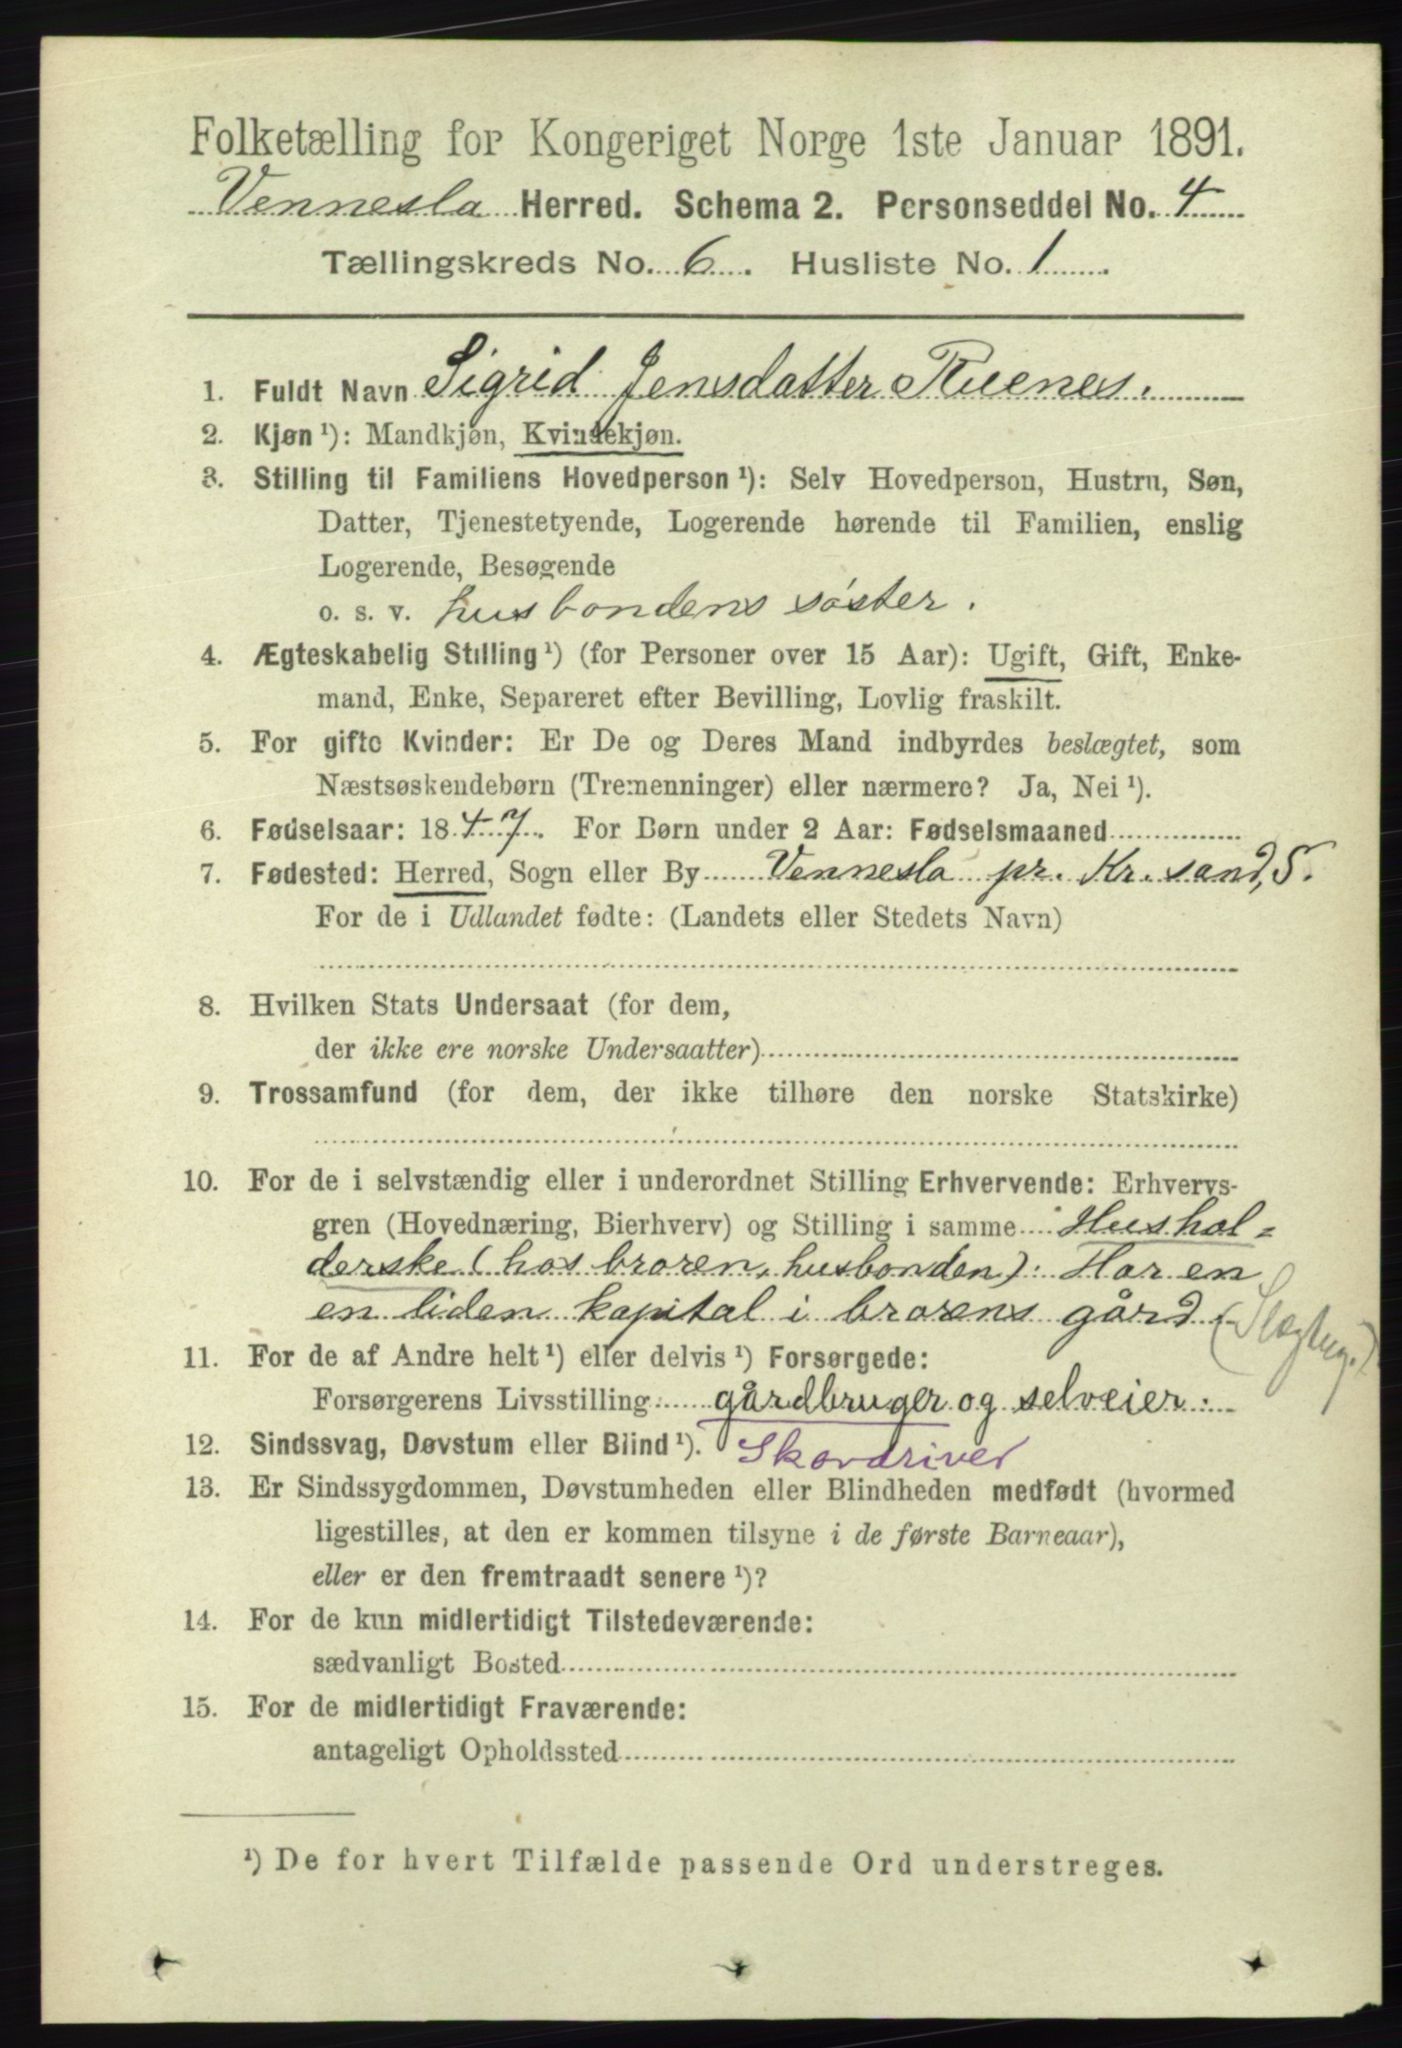 Folketælling for Kongeriget Norge 1ste Januar 1891.
Vennesla Herred. Schema 2. Personseddel No. 4
Tællingskreds No. 6. Husliste No. 1
1. Fuldt Navn Sigrid Jensdatter Ruenes.
2. Kjøn ¹): Mandkjøn, Kvindekjøn.
3. Stilling til Familiens Hovedperson ¹): Selv Hovedperson, Hustru, Søn,
Datter, Tjenestetyende, Logerende hørende til Familien, enslig
Logerende, Besøgende
o. s. v. husbondens søster.
4. Ægteskabelig Stilling ¹) (for Personer over 15 Aar): Ugift, Gift, Enke-
mand, Enke, Separeret efter Bevilling, Lovlig fraskilt.
5. For gifte Kvinder: Er De og Deres Mand indbyrdes beslægtet, som
Næstsøskendebørn (Tremenninger) eller nærmere? Ja, Nei ¹).
6. Fødselsaar: 1847. For Børn under 2 Aar: Fødselsmaaned
7. Fødested: Herred, Sogn eller By Vennesla pr. Kr.sand, S.
For de i Udlandet fødte: (Landets eller Stedets Navn)
8. Hvilken Stats Undersaat (for dem,
der ikke ere norske Undersaatter)
9. Trossamfund (for dem, der ikke tilhøre den norske Statskirke)
10. For de i selvstændig eller i underordnet Stilling Erhvervende: Erhvervs-
gren (Hovednæring, Bierhverv) og Stilling i samme Hushol=
derske (hos broren, husbonden): Har en
en liden kapital i brorens gård.
11. For de af Andre helt ¹) eller delvis ¹) Forsørgede:
Forsørgerens Livsstilling gårdbruger og selveier.
12. Sindssvag, Døvstum eller Blind ¹). Skovdriver
13. Er Sindssygdommen, Døvstumheden eller Blindheden medfødt (hvormed
ligestilles, at den er kommen tilsyne i de første Barneaar),
eller er den fremtraadt senere ¹)?
14. For de kun midlertidigt Tilstedeværende:
sædvanligt Bosted
15. For de midlertidigt Fraværende:
antageligt Opholdssted
¹) De for hvert Tilfælde passende Ord understreges.